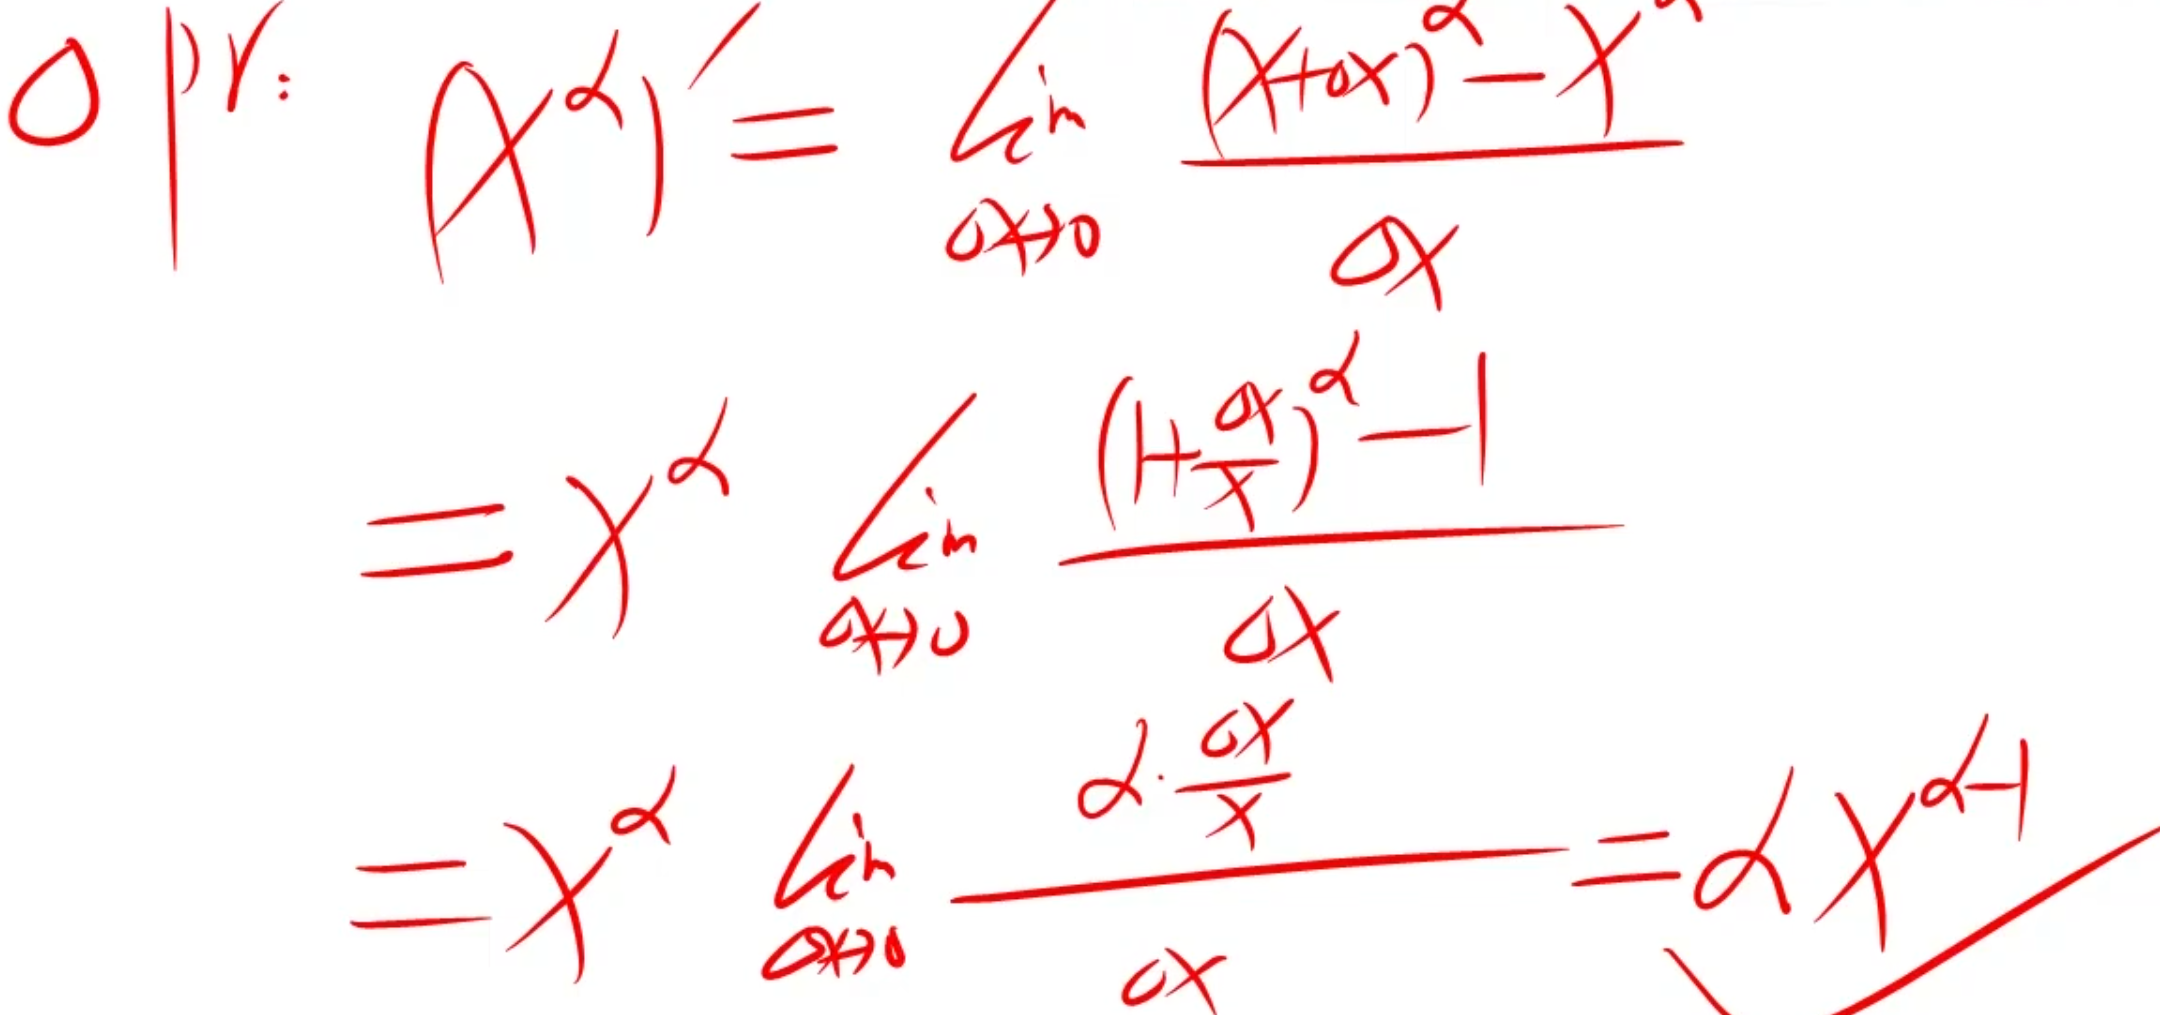 ① pr: (x^α)′ = lim_{Δx→0} ((x+Δx)^α − x^α) / Δx
= x^α lim_{Δx→0} ((1+Δx/x)^α − 1) / Δx
= x^α lim_{Δx→0} (α · Δx/x) / Δx = α x^{α−1}